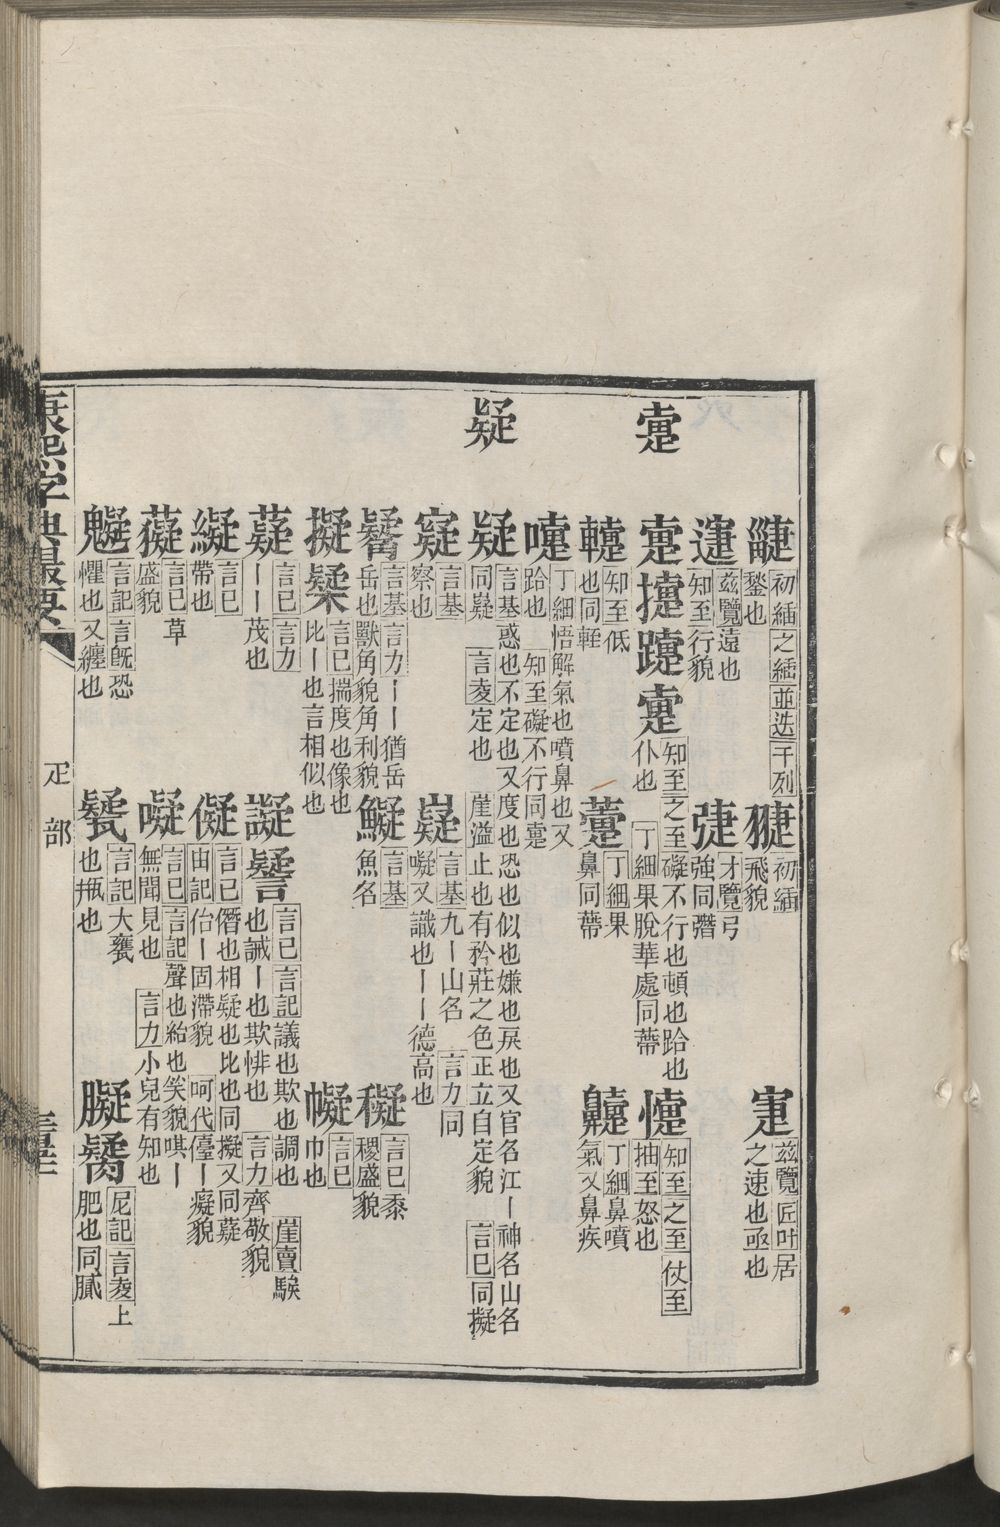 疌 初緬 之緬 並迭 千列 鍫也
翣 初緬 飛貌
寁 茲覽 匠叶 居之速也亟也
茲覽 遠也 知至 行貌
才覽 弓強同彇
疐
疐 懥 躓 疐 知至 之至 礙不行也頓也跲也仆也 丁細 果脫華處同蔕
懥 知至 之至 仗至 抽至 怒也
知至 低也同輊
丁細 果鼻同蔕
丁細 鼻噴氣又鼻疾
嚔 丁細 悟解氣也噴鼻也又跲也 知至 礙不行同疐
疑
疑 言基 惑也不定也又度也恐也似也嫌也戾也又官名江丨神名山名同嶷 言夌 定也 崖溢 止也有矜莊之色正立自定貌 言巳 同擬
言基 察也
嶷 言基 九丨山名 言力 同㘈又識也丨丨德高也
言基 言力 丨丨猶岳岳也獸角貌角利貌
言基 魚名
言巳 黍稷盛貌
擬 言巳 揣度也像也比丨也言相似也
言巳 巾也
薿 言巳 言力 丨丨茂也
譺 言巳 言記 議也欺也調也也誡丨也欺悱也 言力 齊敬貌 崖賣 騃
言巳 帶也
儗 言巳 僭也相疑也比也同擬又同薿 由記 佁丨固滯貌 呵代 儓丨癡貌
言巳 草盛貌
㘈 言巳 言記 聲也給也笑貌唭丨無聞見也 言力 小兒有知也
言記 言旣 恐懼也又纏也
言記 大甕也瓶也
尼記 言夌 上肥也同膩
康熙字典撮要
疋部